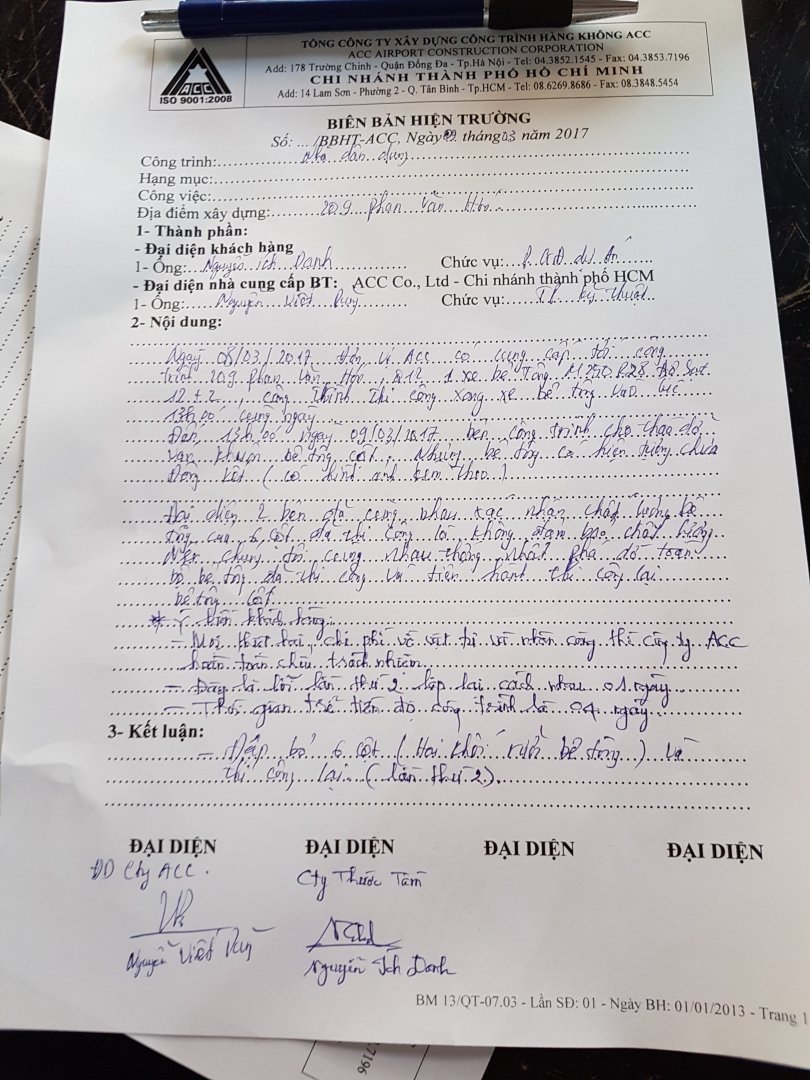 TỔNG CÔNG TY XÂY DỰNG CÔNG TRÌNH HÀNG KHÔNG ACC
ACC AIRPORT CONSTRUCTION CORPORATION
Add: 178 Trường Chinh - Quận Đống Đa - Tp.Hà Nội - Tel: 04.3852.1545 - Fax: 04.3853.7196
CHI NHÁNH THÀNH PHỐ HỒ CHÍ MINH
Add: 14 Lam Sơn - Phường 2 - Q. Tân Bình - Tp.HCM - Tel: 08.6269.8686 - Fax: 08.3848.5454
ACC
ISO 9001:2008
BIÊN BẢN HIỆN TRƯỜNG
Số: .../BBHT-ACC, Ngày 09 tháng 03 năm 2017
Công trình: Nhà dân dụng
Hạng mục:
Công việc:
Địa điểm xây dựng: 209 Phan Văn Hớn
1- Thành phần:
- Đại diện khách hàng
1- Ông: Nguyễn Ích Danh Chức vụ: P. GĐ dự án
- Đại diện nhà cung cấp BT: ACC Co., Ltd - Chi nhánh thành phố HCM
1- Ông: Nguyễn Việt Chức vụ: kỹ thuật
2- Nội dung:
Ngày 08/03/2017 Đơn vị ACC có cung cấp tới công
trình 209 Phan Văn Hớn, Q12 1 xe bê tông M250 R28 độ sụt
12±2, công trình thi công xong xe bê tông vào lúc
13h00 cùng ngày
Đến 13h00 ngày 09/03/2017 bên công trình cho tháo dở
ván khuôn bê tông cột, nhưng bê tông có hiện tượng chưa
Đông kết (có hình ảnh kèm theo)
Đại diện 2 bên đã cùng nhau xác nhận chất lượng bê
tông của 6 cột đã thi công là không đảm bảo chất lượng
Nên chúng tôi cùng nhau thống nhất phá dở toàn
bộ bê tông đã thi công và tiến hành thi công lại
bê tông cột
* Ý kiến khách hàng:
- Mọi thiệt hại, chi phí về vật tư và nhân công thì công ty ACC
hoàn toàn chịu trách nhiệm
- Đây là lỗi lần thứ 2 lặp lại cách nhau 01 ngày
- Thời gian trể tiến độ công trình là 04 ngày
3- Kết luận:
- Đập bỏ 6 cột (Hai khối rưởi bê tông) và
thi công lại (lần thứ 2).
ĐẠI DIỆN ĐẠI DIỆN ĐẠI DIỆN ĐẠI DIỆN
ĐD Cty ACC. Cty Thước Tầm
Nguyễn Việt
Nguyễn Ích Danh
BM 13/QT-07.03 - Lần SĐ: 01 - Ngày BH: 01/01/2013 - Trang 1
7196